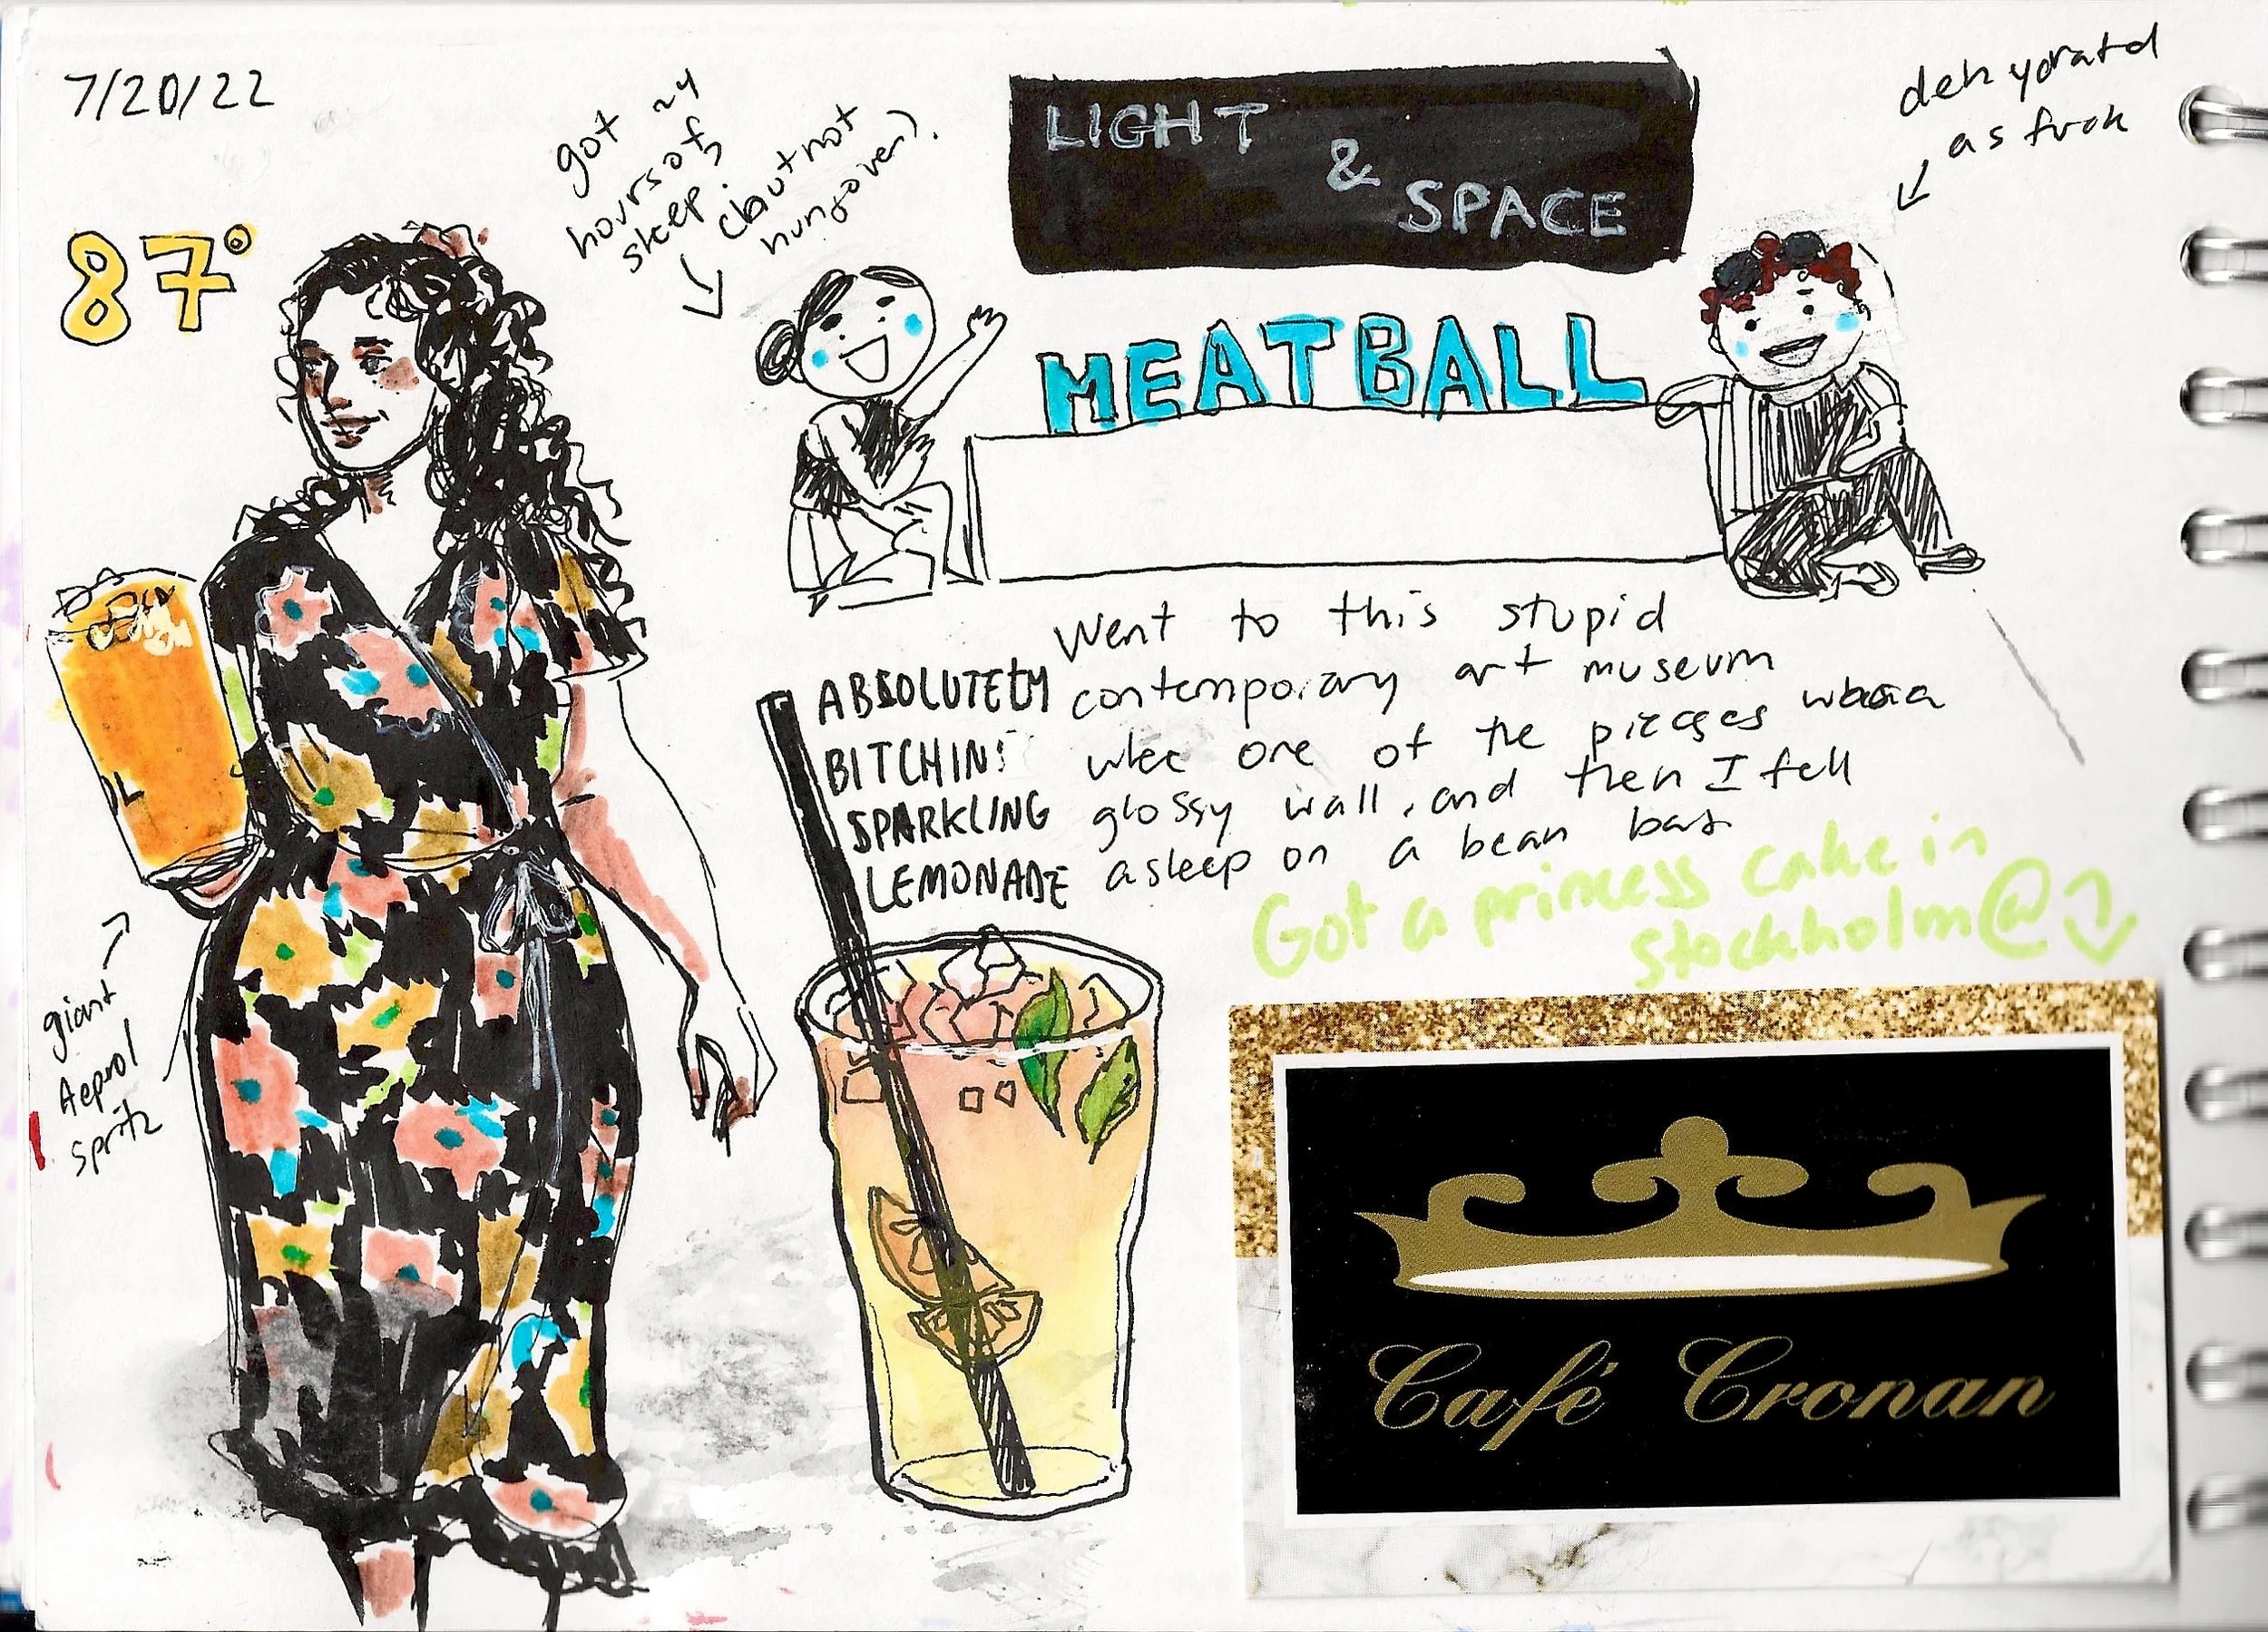 7/20/22
87°
got ~4
hours of
sleep,
(but not
hungover).
LIGHT
&
SPACE
dehydratd
as fuck
MEATBALL
Went to this stupid
contemporary art museum
one of the piecges was a
glossy wall, and then I fell
asleep on a bean bag
ABSOLUTELY
BITCHIN'
SPARKLING
LEMONADE
giant
Aeprol
spritz
Got a princess cake in
stockholm@
Café Cronan